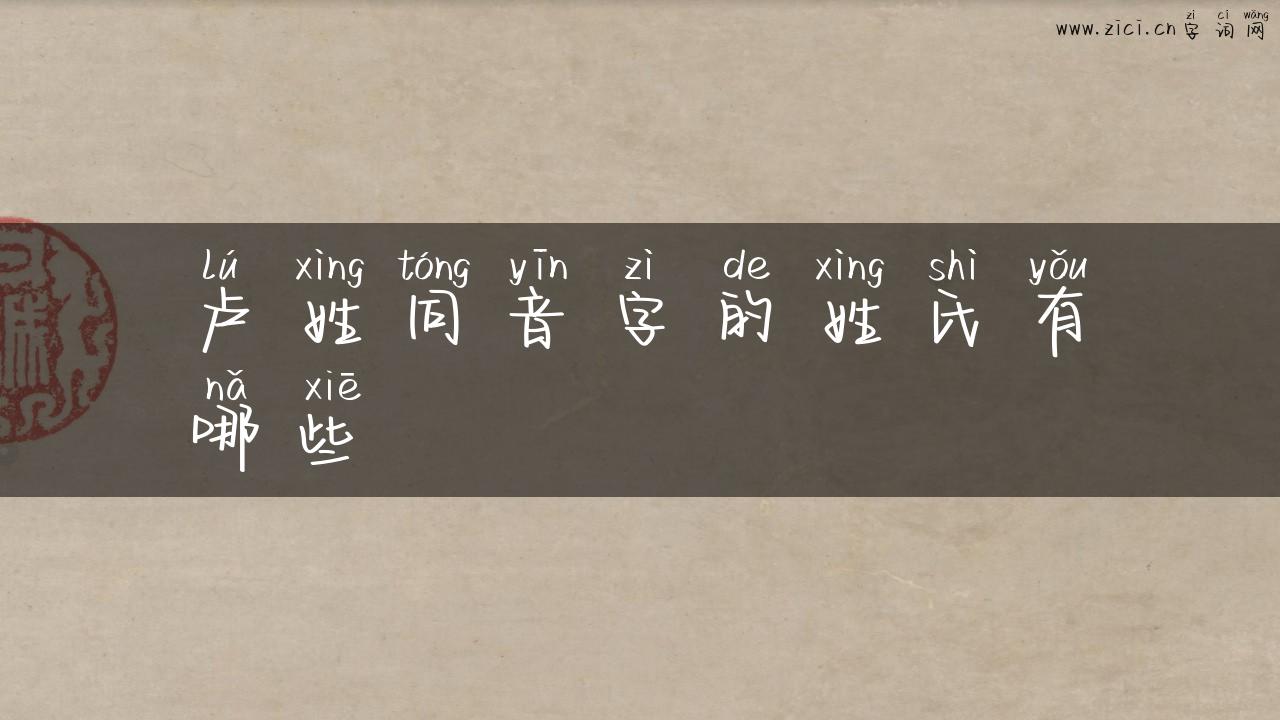 zì cí wǎng
www.zici.cn 字词网
lú xìng tóng yīn zì de xìng shì yǒu
卢姓同音字的姓氏有
nǎ xiē
哪些